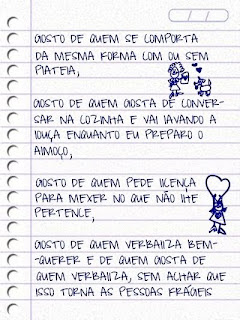 GOSTO DE QUEM SE COMPORTA
DA MESMA FORMA COM OU SEM
PLATEIA,
GOSTO DE QUEM GOSTA DE CONVER-
SAR NA COZINHA E VAI LAVANDO A
LOUÇA ENQUANTO EU PREPARO O
ALMOÇO,
GOSTO DE QUEM PEDE LICENÇA
PARA MEXER NO QUE NÃO LHE
PERTENCE,
GOSTO DE QUEM VERBALIZA BEM-
-QUERER E DE QUEM GOSTA DE
QUEM VERBALIZA, SEM ACHAR QUE
ISSO TORNA AS PESSOAS FRÁGEIS